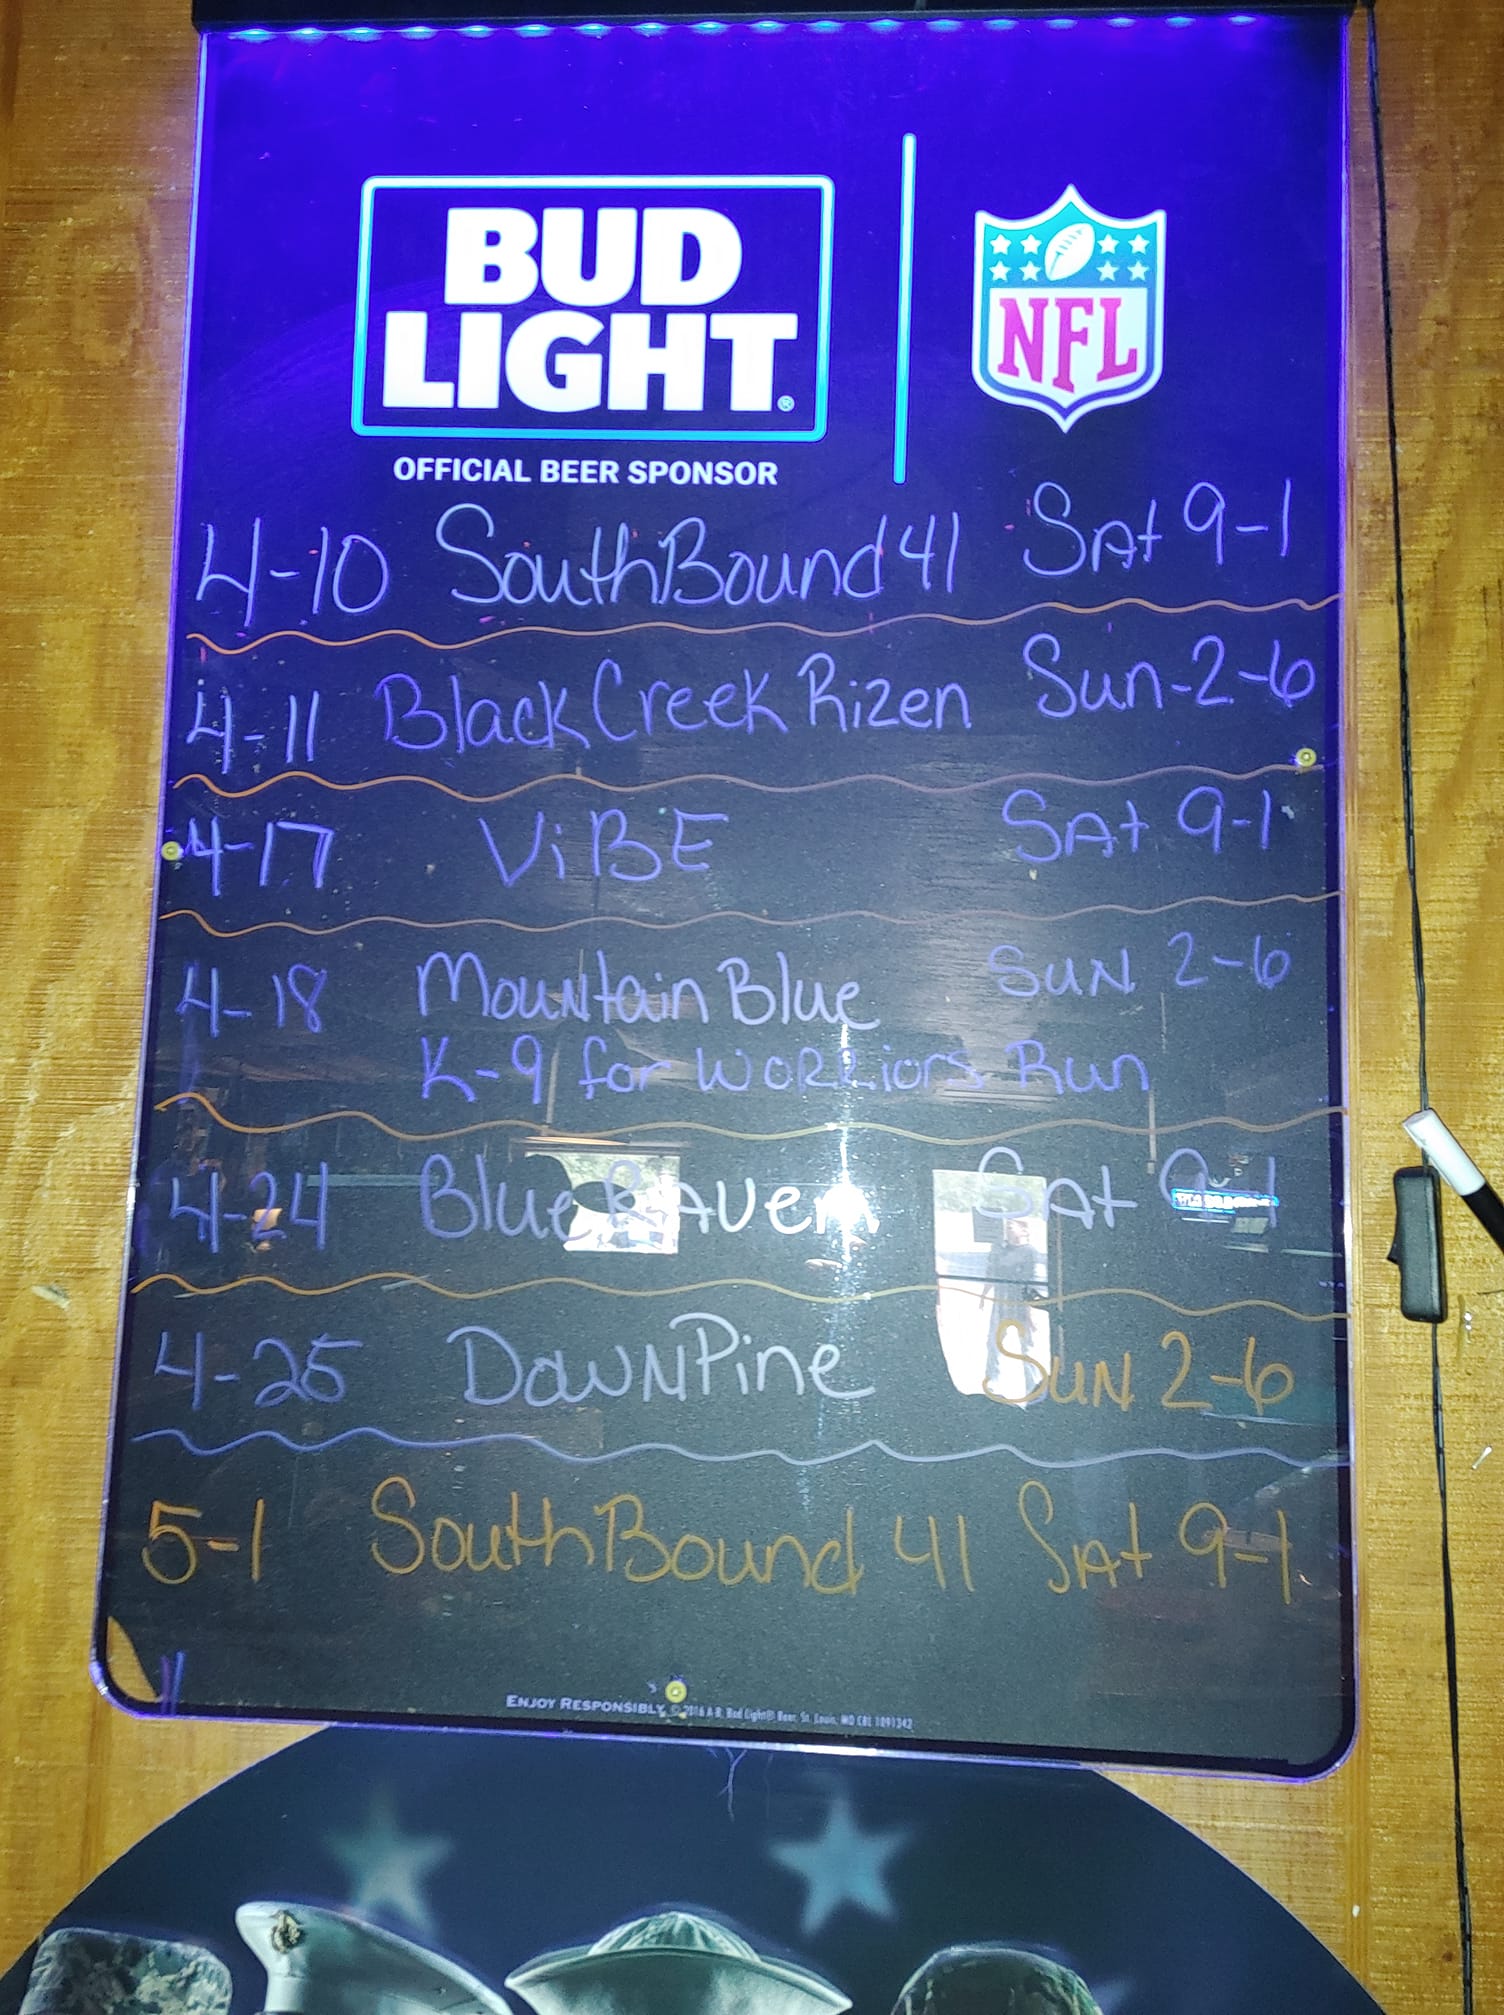 BUD
LIGHT®
NFL
OFFICIAL BEER SPONSOR
4-10 SouthBound 41 SAt 9-1
4-11 Black Creek Rizen Sun-2-6
4-17 ViBE SAt 9-1
4-18 Mountain Blue SUN 2-6
K-9 for WORRiors Run
4-24 Blue RAven SAt 9-1
4-25 DowNPine SUN 2-6
5-1 SouthBound 41 SAt 9-1
ENJOY RESPONSIBLY © 2016 A-B, Bud Light® Beer, St. Louis, MO